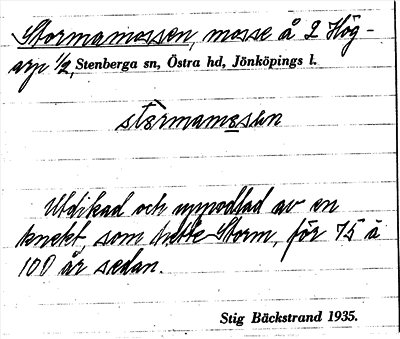 Stormamossen, mosse å 2 Hög-
arp 1/2, Stenberga sn, Östra hd, Jönköpings l.
stormamosan
Utdikad och uppodlad av en
knekt, som hette Storm, för 75 à
100 år sedan.
Stig Bäckstrand 1935.